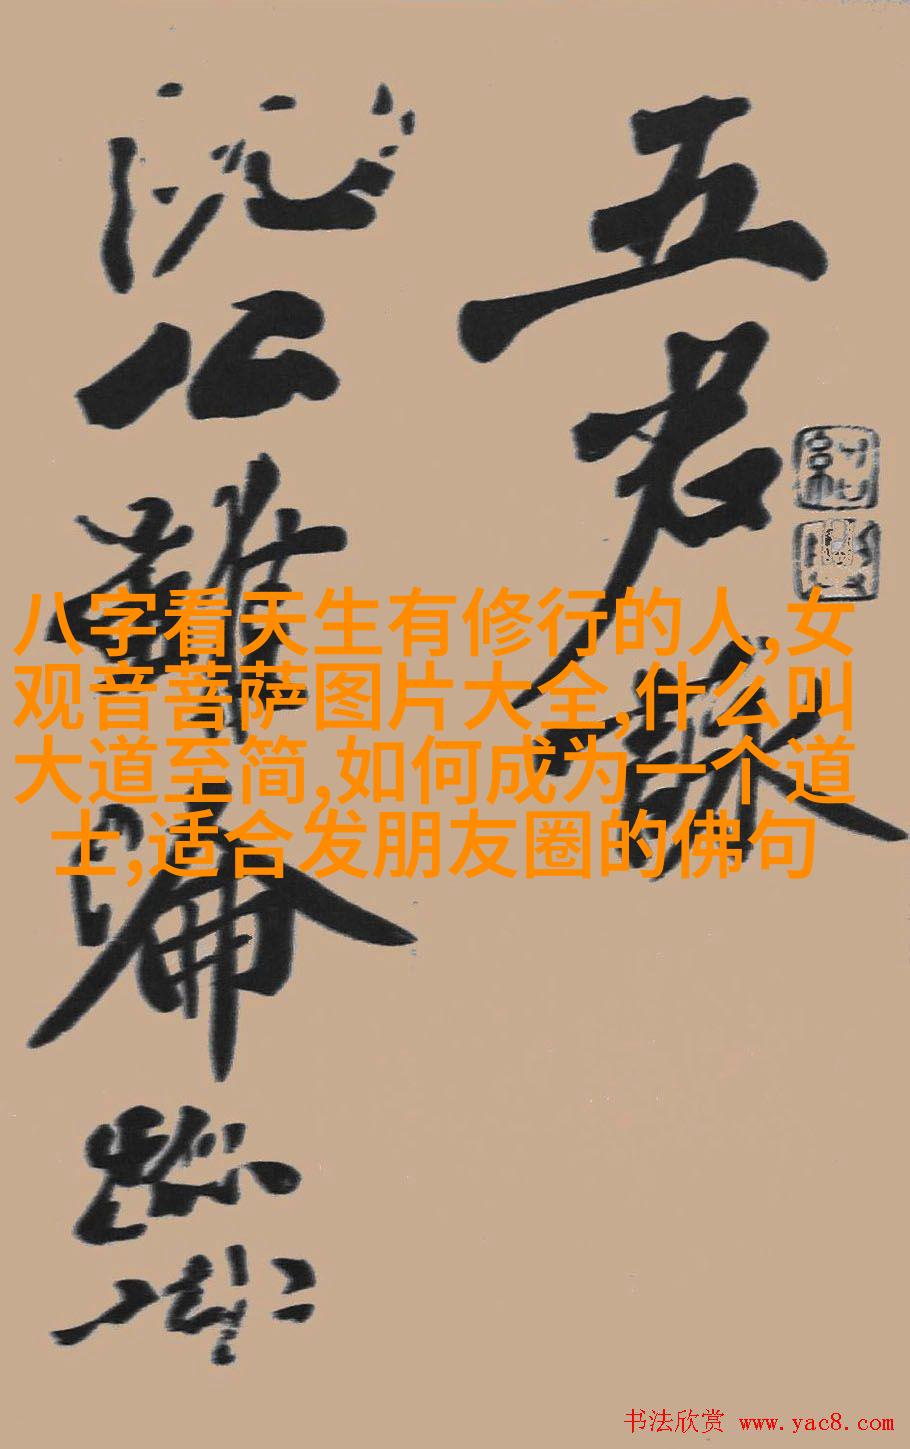 五君詠
阮公雖淪跡
八字看天生有修行的人,女
观音菩萨图片大全,什么叫
大道至简,如何成为一个道
士,适合发朋友圈的佛句
书法欣赏 www.yac8.com